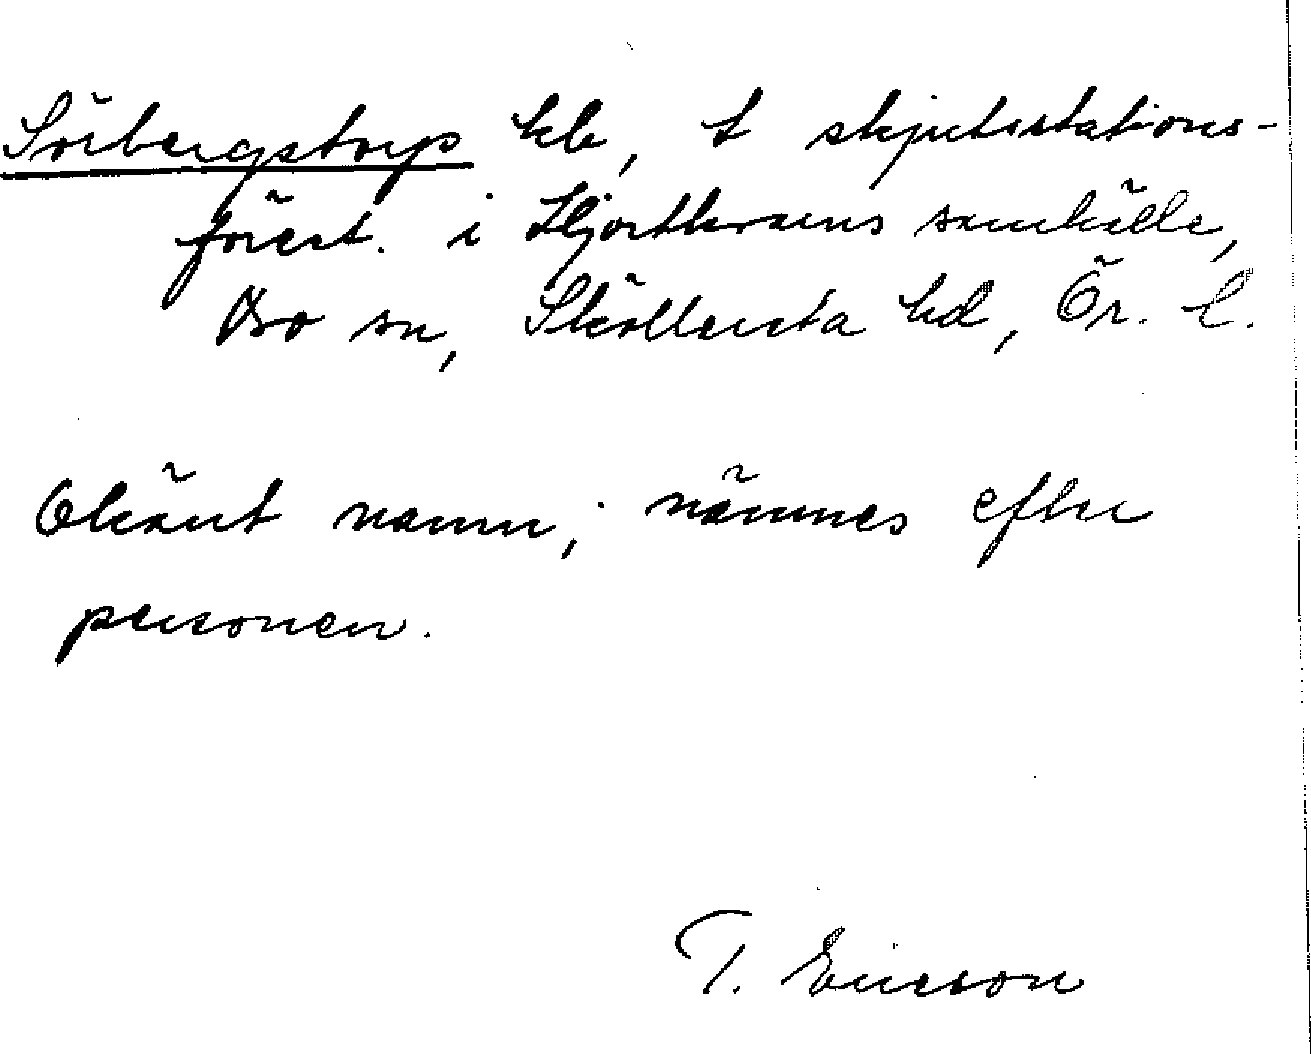 Sörbergstorp hls, t skjutsstations-
förest. i Hjortkvarns samhälle,
Bo sn, Sköllersta hd, Ör. l.
Okänt namn; nämnes efter
personen.
T. Ericson